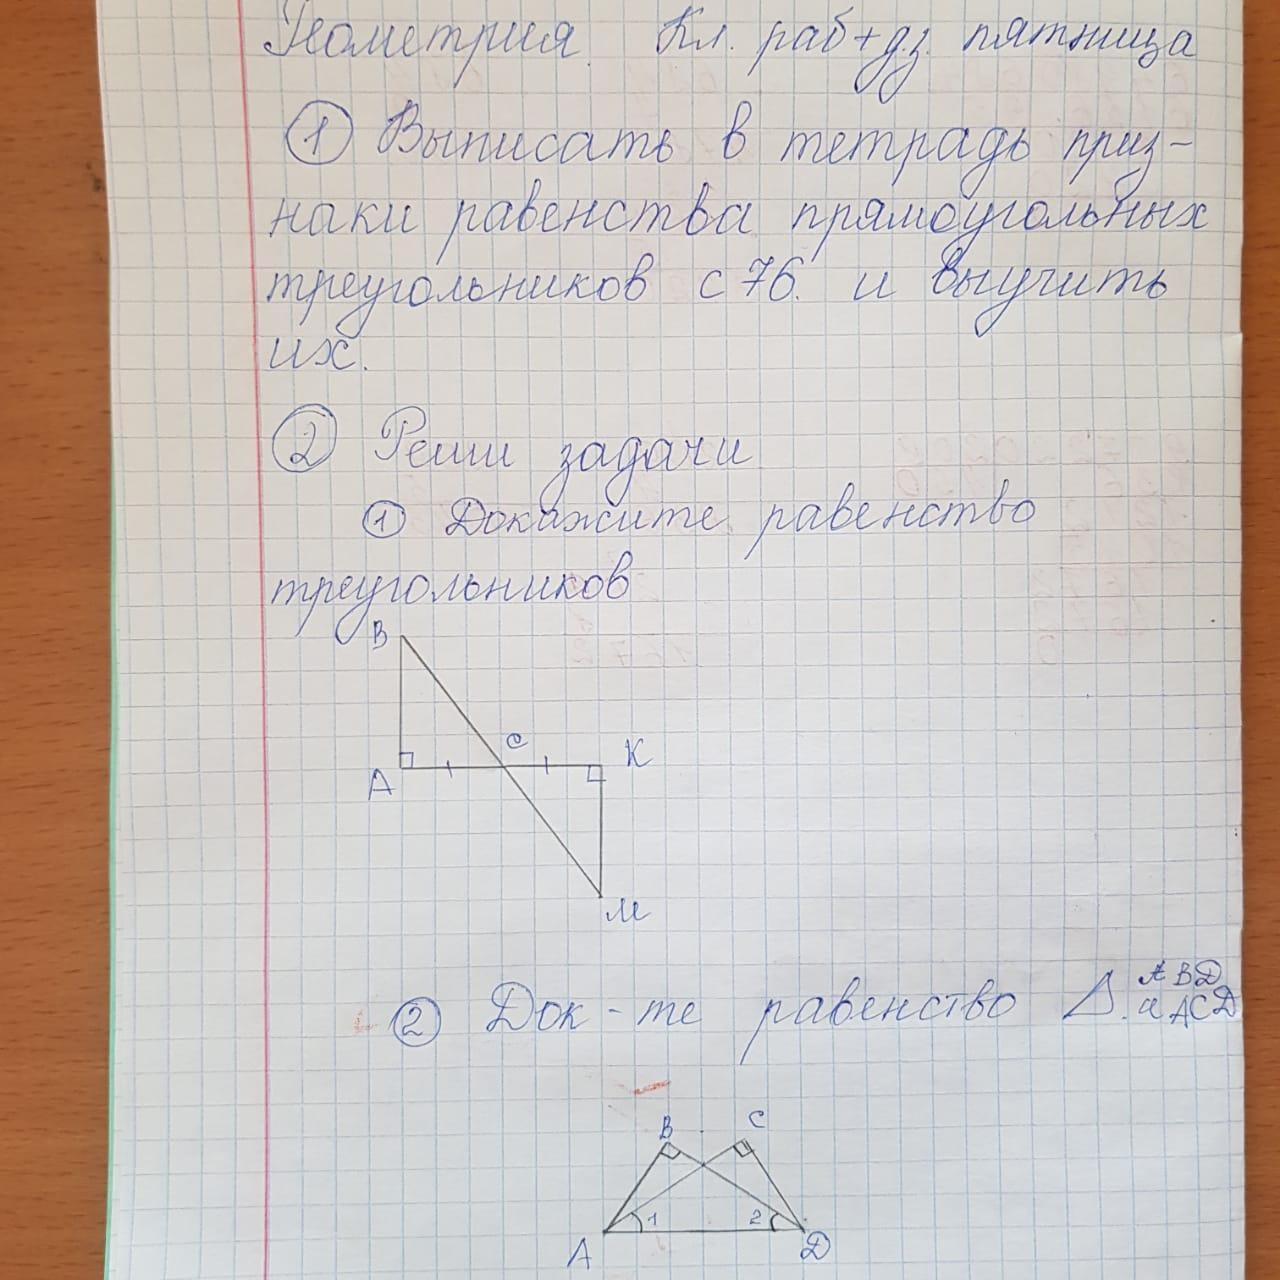 Геометрия. Кл. раб + д.з. пятница
① Выписать в тетрадь приз-
наки равенства прямоугольных
треугольников с 76. и выучить
их.
② Реши задачи
① Докажите равенство
треугольников
В
С
К
А
М
② Док-те равенство Δ. АВD
и ACD
В С
1 2
А D